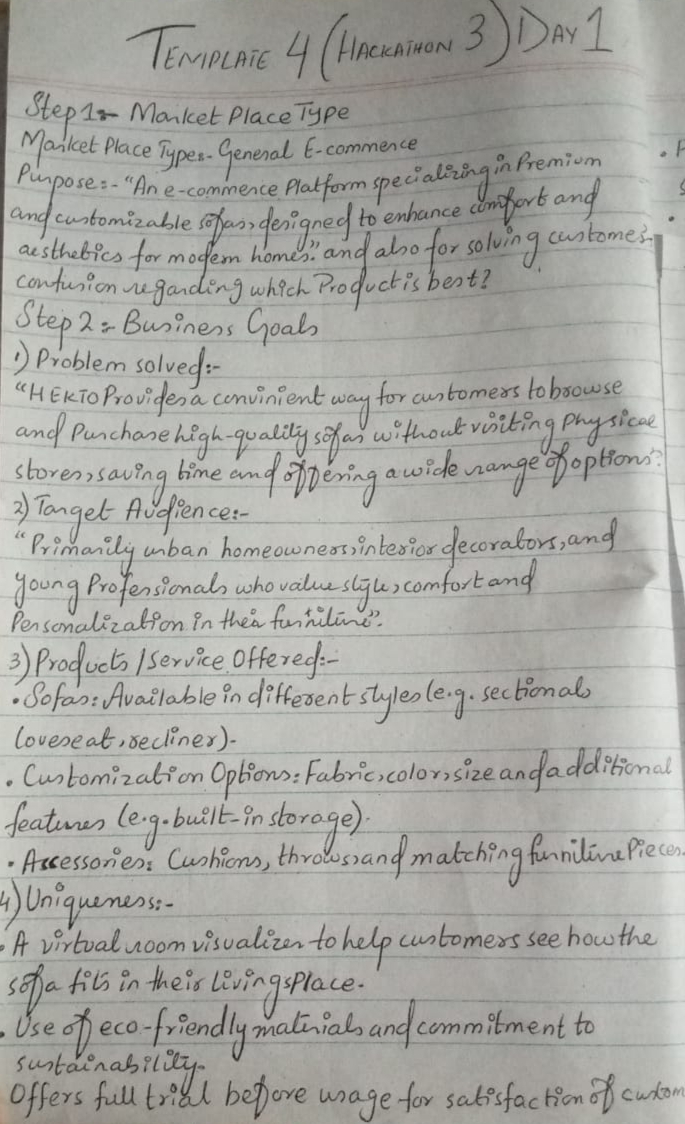 TEMPLATE 4 (HACKATHON 3) DAY 1
Step 1:- Market Place Type
Market Place Type:- General E-commerce
Purpose:- "An e-commerce Platform specializing in Premium
and customizable sofas, designed to enhance comfort and
aesthetics for modern homes." and also for solving customer
confusion regarding which Product is best?
Step 2:- Business Goals
1) Problem solved:-
"HEKTO Provides a convinient way for customers to browse
and Purchase high-quality sofas without visiting Physical
stores, saving time and offering a wide range of options".
2) Target Audience:-
"Primarily urban homeowners, interior decorators, and
young Professionals who value style, comfort and
Personalization in their furniture".
3) Products / Service Offered:-
• Sofas: Available in different styles (e.g. sectional,
loveseat, recliner).
• Customization Options: Fabric, color, size and additional
features (e.g. built-in storage).
• Accessories: Cushions, throws, and matching furniture Pieces.
4) Uniqueness:-
• A virtual room visualizer to help customers see how the
sofa fits in their living sPlace.
• Use of eco-friendly materials and commitment to
sustainability.
Offers full trial before usage for satisfaction of custom